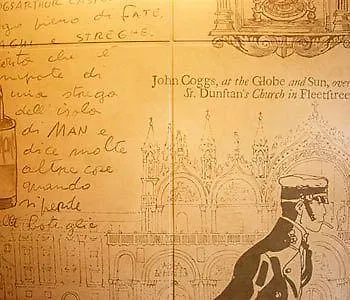 OGSARTHUR
pieno di FATE,
MAGHI e STREGHE.
che è
nipote di
una strega
dell'isola
di MAN e
dice molte
altre cose
quando
le bottiglie
John Coggs, at the Globe and Sun, over
St. Dunstan's Church in Fleetstree